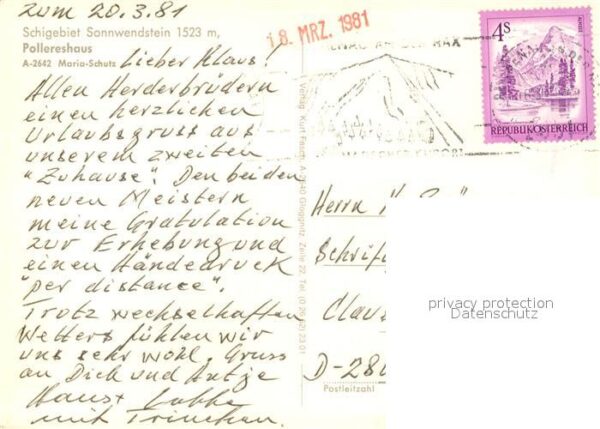 zum 20.3.81
Schigebiet Sonnwendstein 1523 m,
Pollereshaus
A-2642 Maria-Schutz
Lieber Klaus!
Allen Herderbrüdern
einen herzlichen
Urlaubsgruss aus
unserem zweiten
"Zuhause". Den beiden
neuen Meistern
meine Gratulation
zur Erhebung und
einen Händedruck
"per distance".
Trotz wechselhaften
Wetters fühlen wir
uns sehr wohl. Gruss
an Dich und Antje
Hans +
mit Trinchen.
Verlag Kurt A-2640 Gloggnitz, Zeile 22, Tel. (0 26 62) 23 01
18. MRZ. 1981
RAX
4s
ALMSEE
REPUBLIK ÖSTERREICH
Herrn
Schrif
Claus
D-280
Postleitzahl
privacy protection
Datenschutz